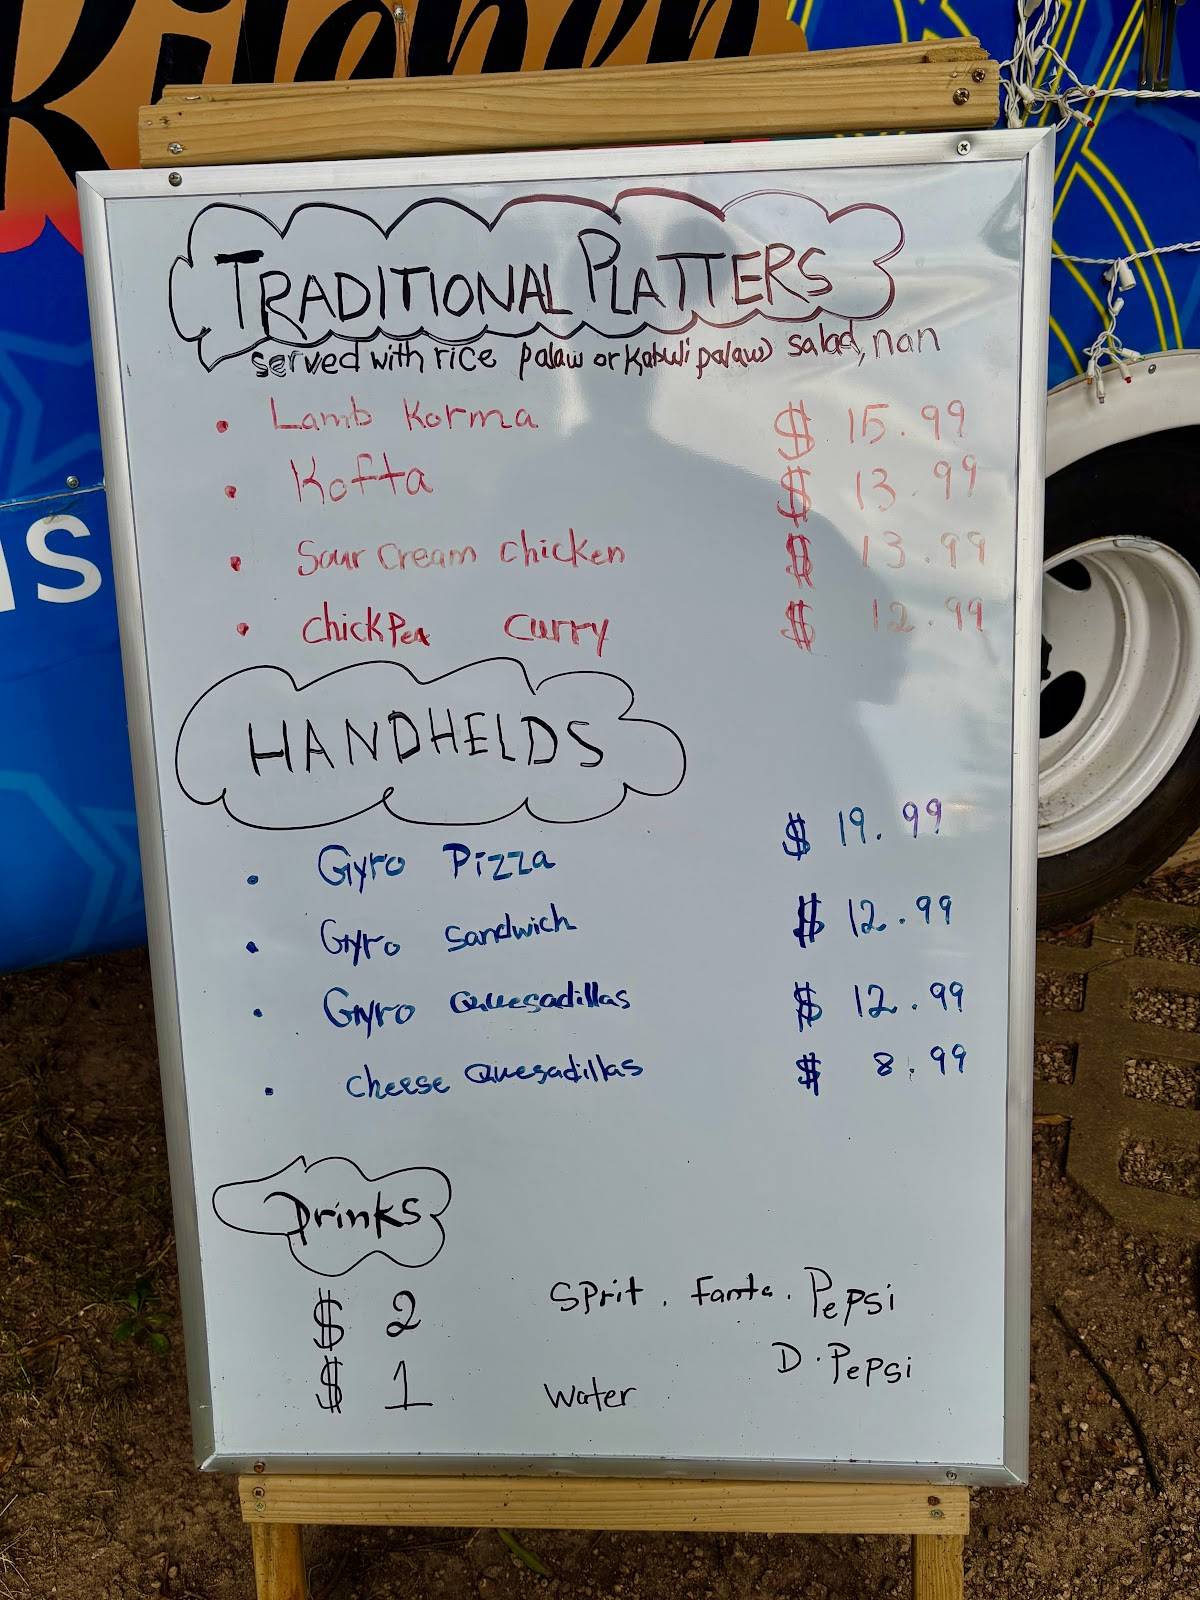 Kitchen
NS
TRADITIONAL PLATTERS
served with rice palaw or Kabuli palaw) salad, nan
• Lamb Korma $ 15.99
• Kofta $ 13.99
• Sour Cream chicken $ 13.99
• chickpea curry $ 12.99
HANDHELDS
• Gyro Pizza $ 19.99
• Gyro Sandwich $ 12.99
• Gyro Quesadillas $ 12.99
• Cheese Quesadillas $ 8.99
Drinks
$ 2 Sprit. Fanta. Pepsi
D. Pepsi
$ 1 Water